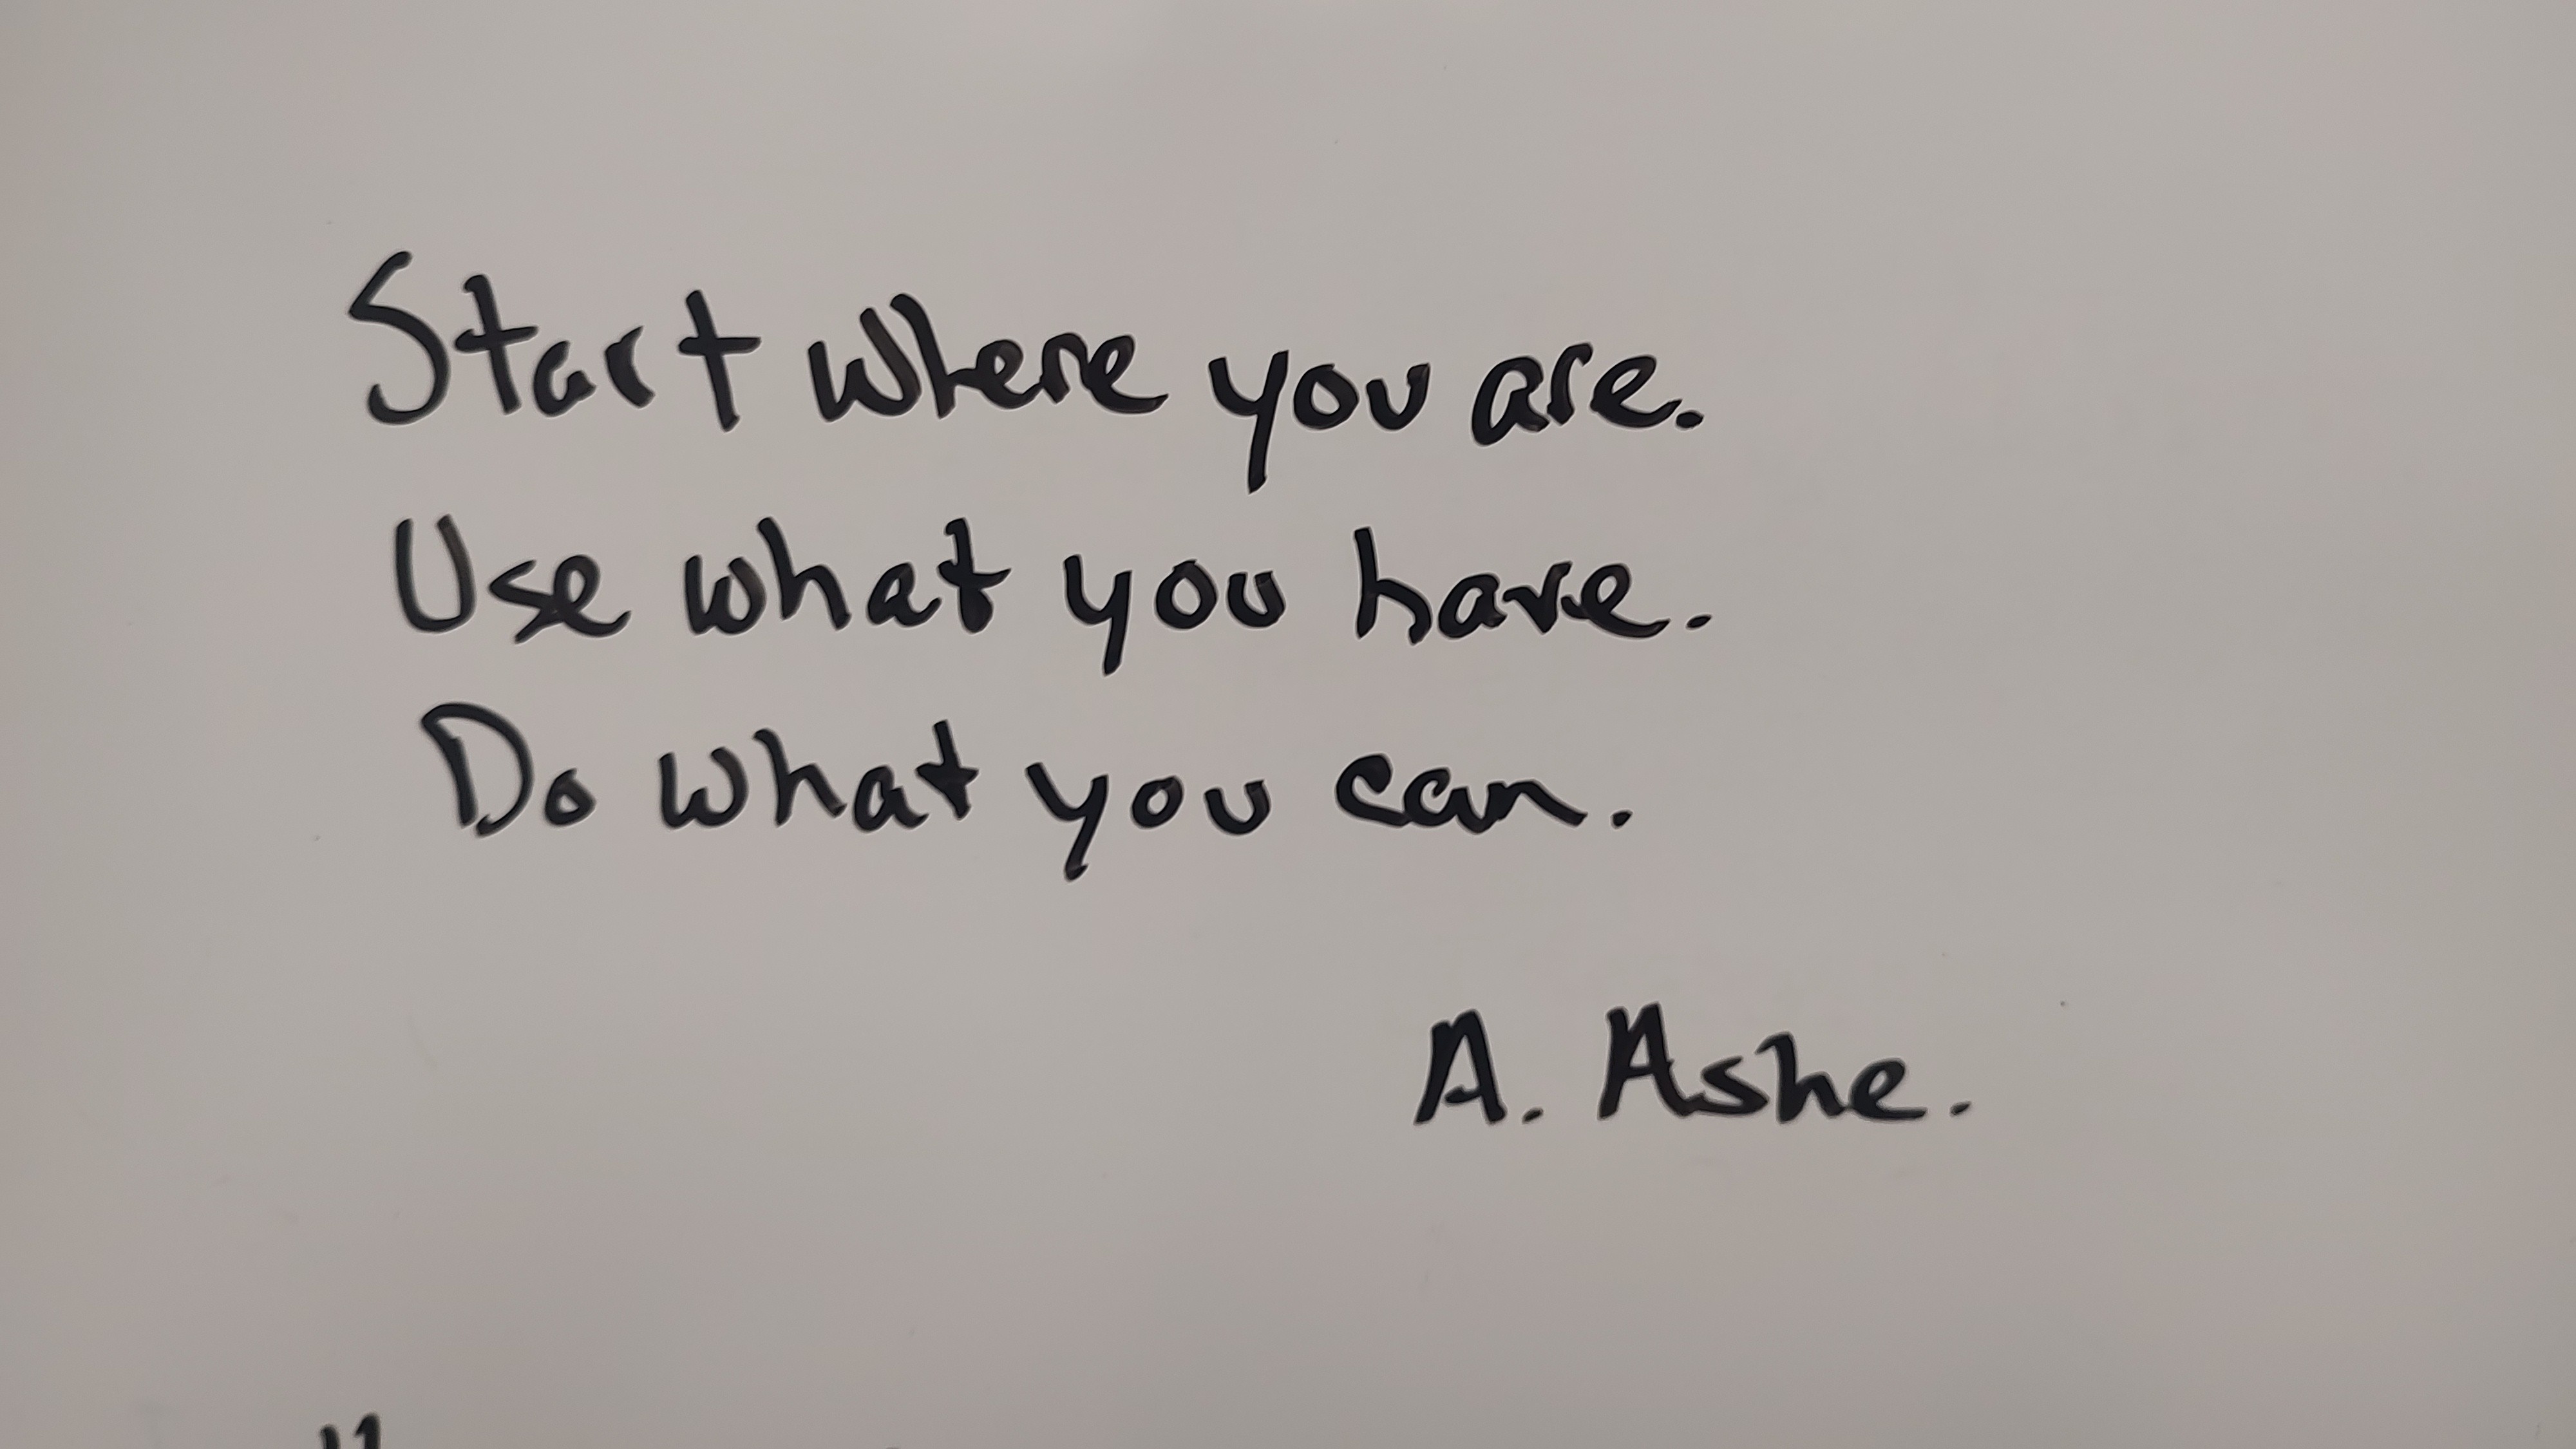 Start where you are.
Use what you have.
Do what you can.
A. Ashe.